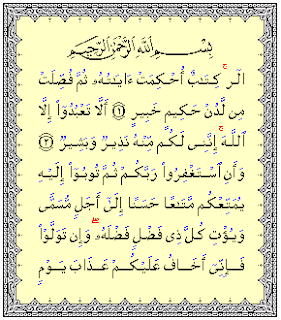 بِسْمِ اللَّهِ الرَّحْمَٰنِ الرَّحِيمِ
الٓر ۚ كِتَٰبٌ أُحْكِمَتْ ءَايَٰتُهُۥ ثُمَّ فُصِّلَتْ
مِن لَّدُنْ حَكِيمٍ خَبِيرٍ ۝١ أَلَّا تَعْبُدُوٓا۟ إِلَّا
ٱللَّهَ ۚ إِنَّنِى لَكُم مِّنْهُ نَذِيرٌ وَبَشِيرٌ ۝٢
وَأَنِ ٱسْتَغْفِرُوا۟ رَبَّكُمْ ثُمَّ تُوبُوٓا۟ إِلَيْهِ
يُمَتِّعْكُم مَّتَٰعًا حَسَنًا إِلَىٰٓ أَجَلٍ مُّسَمًّى
وَيُؤْتِ كُلَّ ذِى فَضْلٍ فَضْلَهُۥ ۖ وَإِن تَوَلَّوْا۟
فَإِنِّىٓ أَخَافُ عَلَيْكُمْ عَذَابَ يَوْمٍ